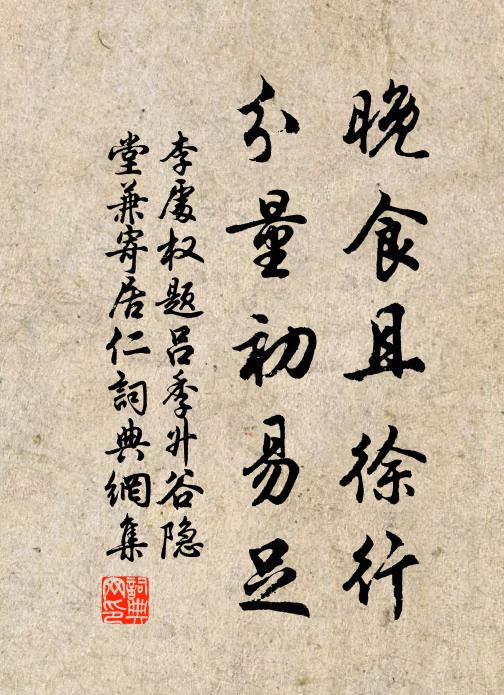 晚食且徐行
分量初易足
李處权題吕季升谷隐
堂兼寄居仁詞典網集
詞典網印